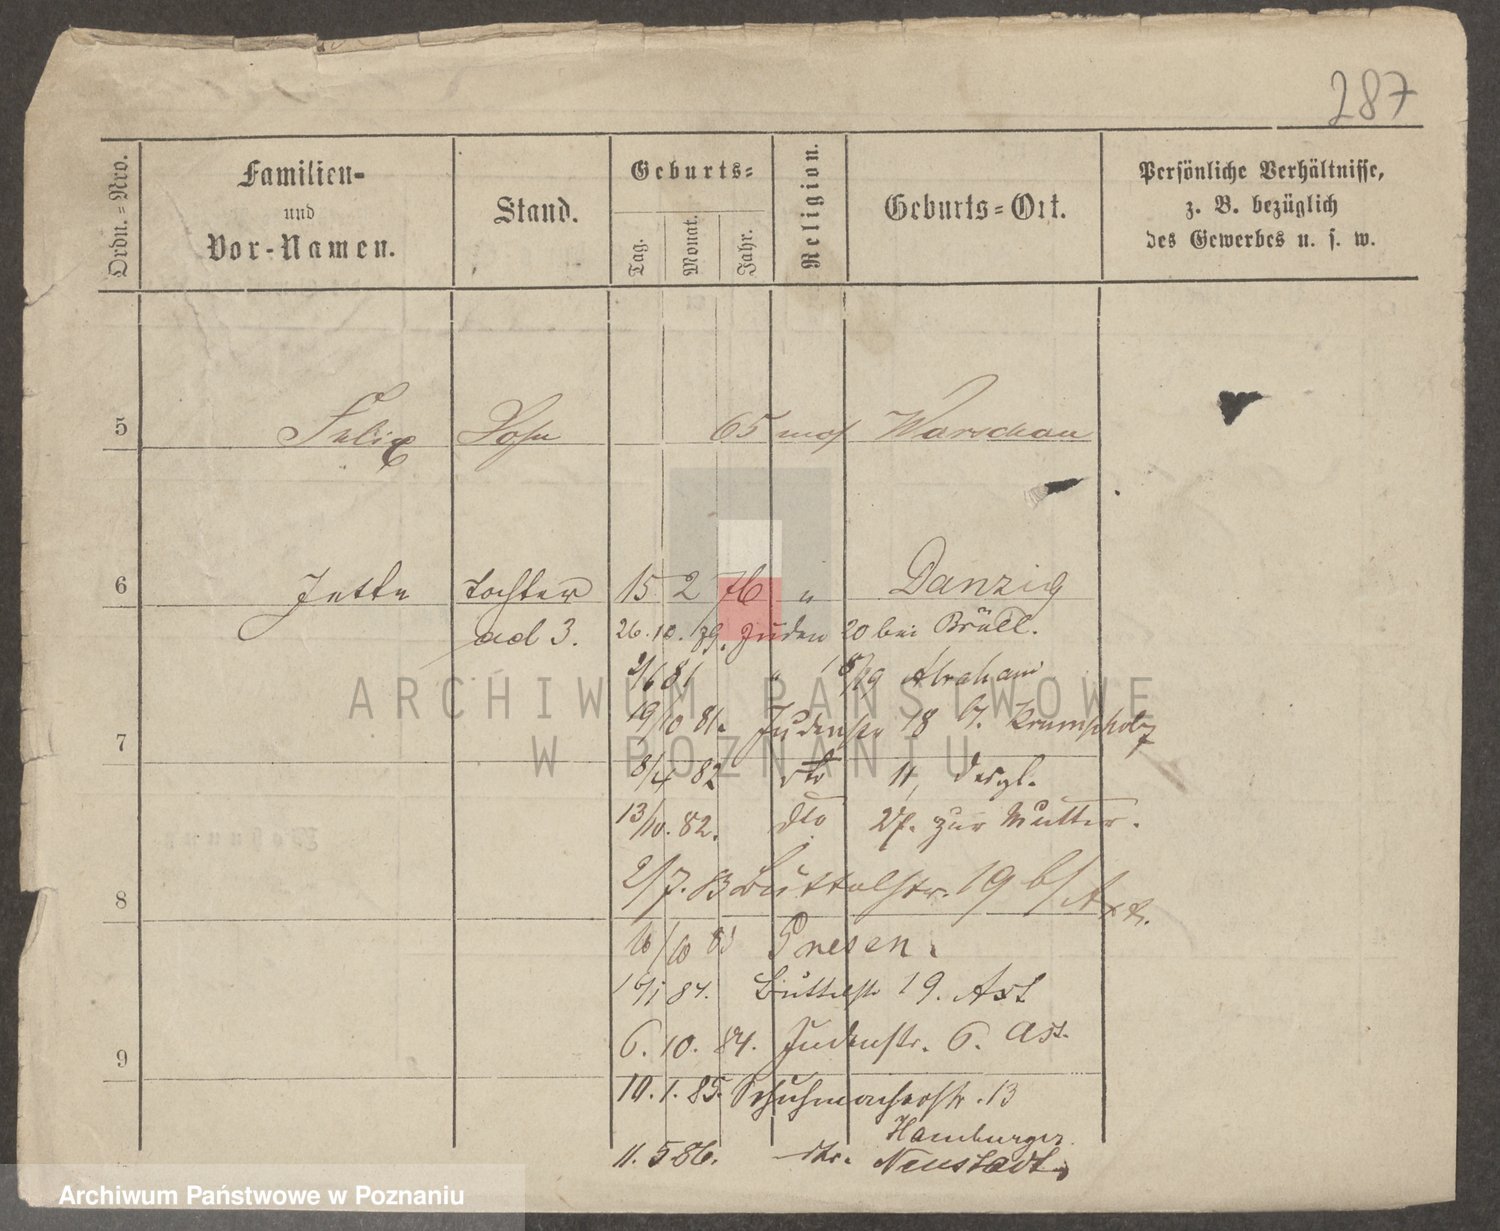 287
Ordn.=Nro.
Familien-
und
Vor-Namen.
Stand.
Geburts=
Tag.
Monat.
Jahr.
Religion.
Geburts=Ort.
Persönliche Verhältnisse,
z. B. bezüglich
des Gewerbes u. s. w.
5 Felix Sohn 65 mos Warschau
6 Jette Tochter 15 2 76 " Danzig
ad 3. 26. 10. 79. Juden 20 bei Brüll.
2/6 81 " 18/19 Abraham
19/10 81. Judenstr 18 b. Krumpholz
7
8/4 82 dto 11, desgl.
13/10. 82. dto 27. zur Mutter.
2/7. 83 Büttelstr. 19 b/ Axt.
8
16/10 83 Posen.
19/1 84. Büttelstr 19. Axt
6. 10. 84. Judenstr. 6. Axt.
9
10. 1. 85. Schuhmacherstr. 13
Hamburger
11. 5 86. Neustadt
ARCHIWUM PAŃSTWOWE
W POZNANIU
Archiwum Państwowe w Poznaniu